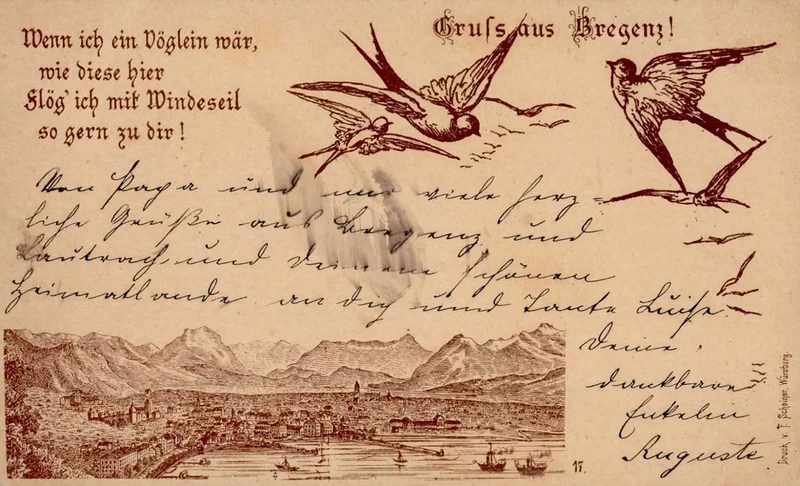 Gruss aus Bregenz!
Wenn ich ein Vöglein wär,
wie diese hier
Flög' ich mit Windeseil
so gern zu dir!
Von Papa und mir viele herz-
liche Grüße aus Bregenz und
Lautrach und Deinem schönen
Heimatlande an dich und Tante Luise.
Deine
dankbare
Enkelin
Auguste
17.
Druck v. Würzburg.